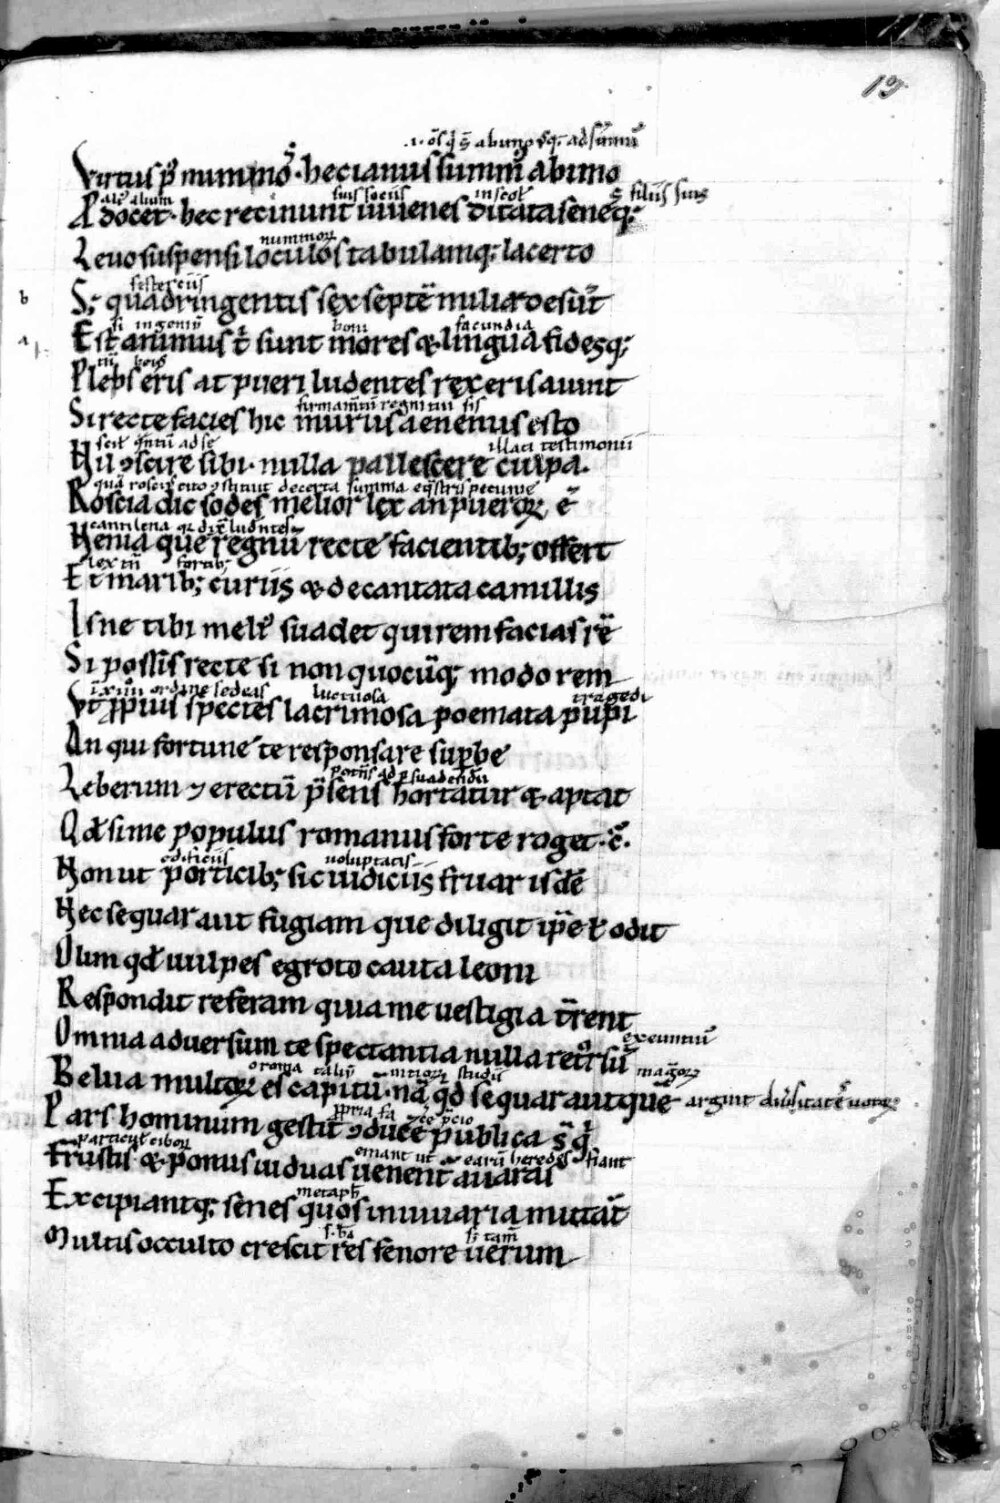 19
Virtus p̄ nummoˢ · hec ianus summ̄ ab imo
aliū alium suis sociis in scol̄ filiis suis
Ꝑdocet · hec recinunt iuuenes dictata seneq;
nummorꝝ
Leuo suspensi loculos tabulamq; lacerto
sesterciis
b S; quadringentis sex septē milia desūt
si ingeniū boni facundia
a Est animus ⁊̄ sunt mores & lingua fidesq;
Plebs eris at pueri ludentes rex eris aiunt
firmam̄tū regni tui sis
Si recte facies hic murus aeneus esto
illati testimonii
Nil ꝯscire sibi · nulla pallescere culpa.
Roscia dic sodes melior lex an puerorꝝ ē
Nenia que regnū recte facientib; offert
lex tn̄ fortib;
Et marib; curiis & decantata camillis
Isne tibi meli᷒ suadet qui rem facias rē
Si possis recte si non quocūq; modo rem
ordine sedeas luctuosa tragedi
Vt ꝓpius spectes lacrimosa poemata pupi
An qui fortune te responsare suꝑbe
potens ad ꝑsuadendū
Leberum ⁊ erectū p̄sens hortatur & aptat
Qđ si me populus romanus forte roget · c̄.
edificiis uoluptatis
Non ut porticib; sic iudiciis fruar isdē
Nec sequar aut fugiam que diligit ip̄e ł odit
Olim qđ uulpes egroto cauta leoni
Respondit referam quia me uestigia t̄rent
Omnia aduersum te spectantia nulla ret̊rsū
exeuntiū
Belua multorꝝ es capitū · nā qđ sequar aut quē
Pars hominum gestit ꝯducē publica s̄ q̄
particul̄ ciborꝝ emant ut earū heredes fiant
Frustis & pomis uiduas uenent̄ auaras
metaph̄
Excipiantq; senes quos in uiuaria mittāt
Multis occulto crescit res fenore uerum